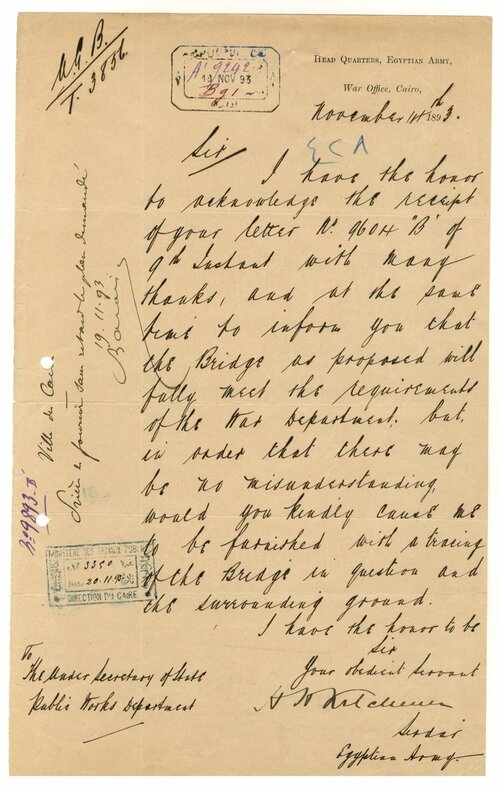 A.G.B.
T. 3836
A' 9292
18 NOV 93
Bg1
HEAD QUARTERS, EGYPTIAN ARMY,
WAR OFFICE, CAIRO,
November 14th 1893.
Sir
I have the honor
to acknowledge the receipt
of your letter No. 9604 "B" of
9th Instant with many
thanks, and at the same
time to inform you that
the Bridge as proposed will
fully meet the requirements
of the War Department. but,
in order that there may
be no misunderstanding,
would you kindly cause me
to be furnished with a tracing
of the Bridge in question and
the surrounding ground.
I have the honor to be
Sir
Your obedient Servant
H H Kitchener
Sirdar
Egyptian Army.
To
The Under Secretary of State
Public Works Department
Ville du Caire
Prière de fournir sans retard le plan demandé
19.11.93
No 9893 B
MINISTÈRE DES TRAVAUX PUBLICS
No 3350
20.11.93
DIRECTION DU CAIRE